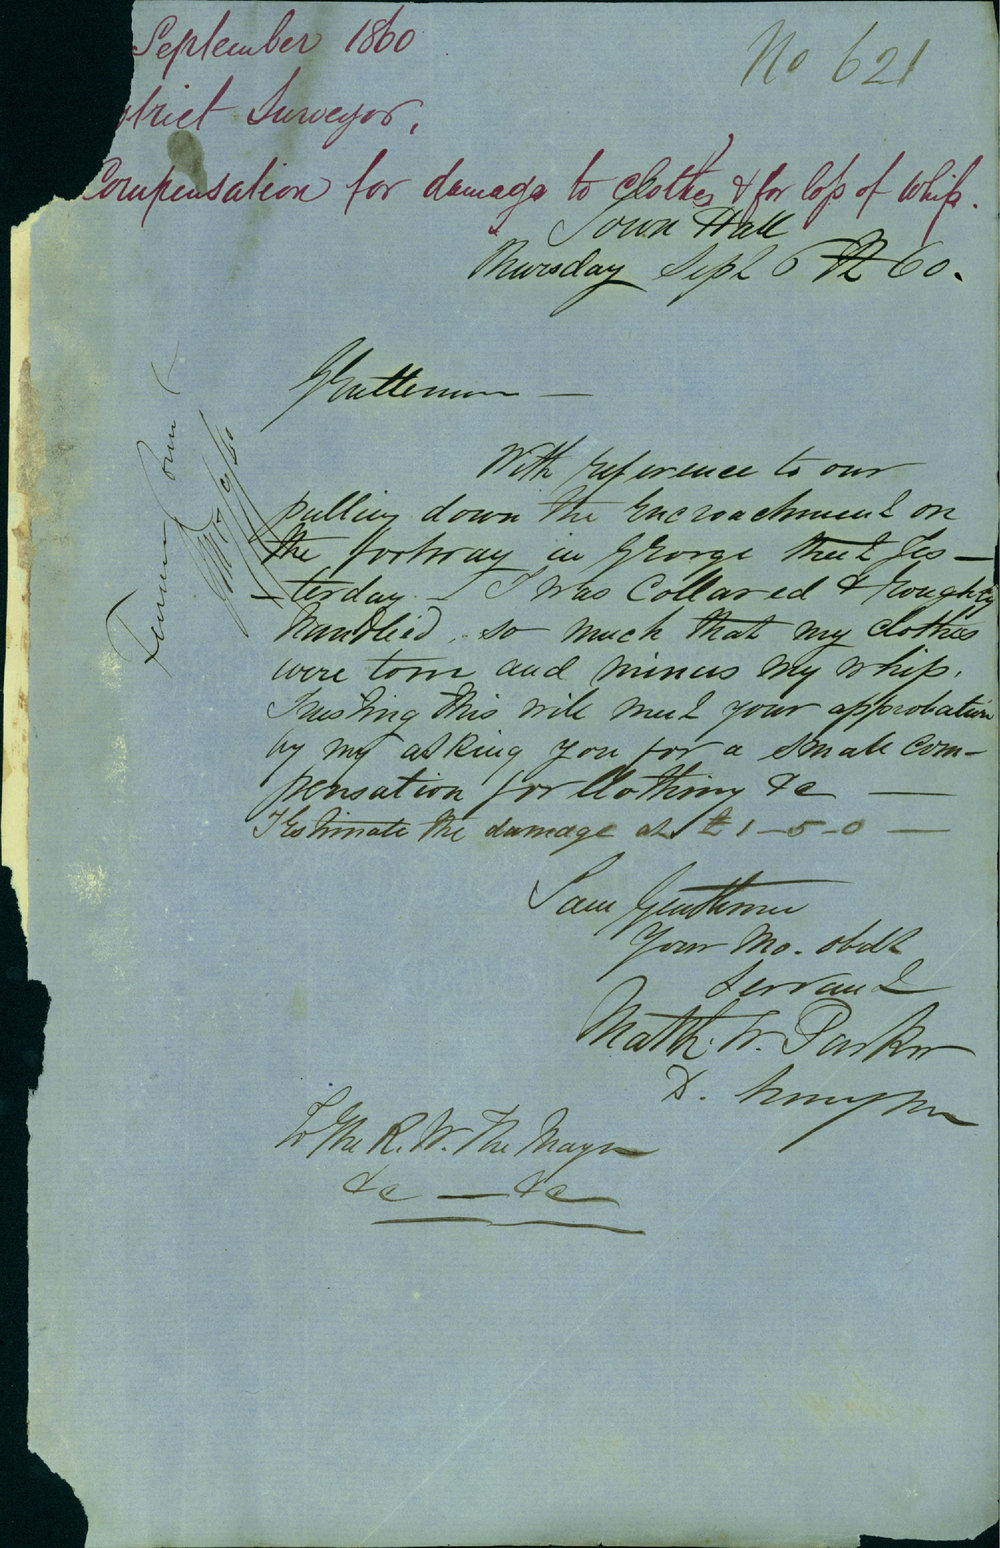 September 1860
No 621
strict Surveyor,
Compensation for damage to clothes & for loss of whip.
Town Hall
Thursday Sept 6th 60.
Gentlemen —
With reference to our
pulling down the encroachment on
the footway in George Street Yes-
-terday – I was Collared & roughly
handled, so much that my clothes
were torn and minus my whip.
Trusting this will meet your approbation
by my asking you for a small com-
pensation for Clothing &c —
I Estimate the damage at £1-5-0 —
I am Gentlemen
Your Mo. obdt
Servant
Matth. W. Parker
D. Surveyor
To the R. W. The Mayor
&c — &c